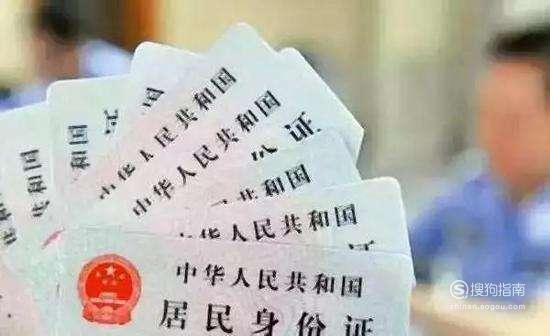 共和国
人民共和国
中华人民共和国
中华人民共和国
份证
中华人民共和国
中华人民共和国
中华人民共和国
居民身份证
搜狗指南
zhinan.sogou.com